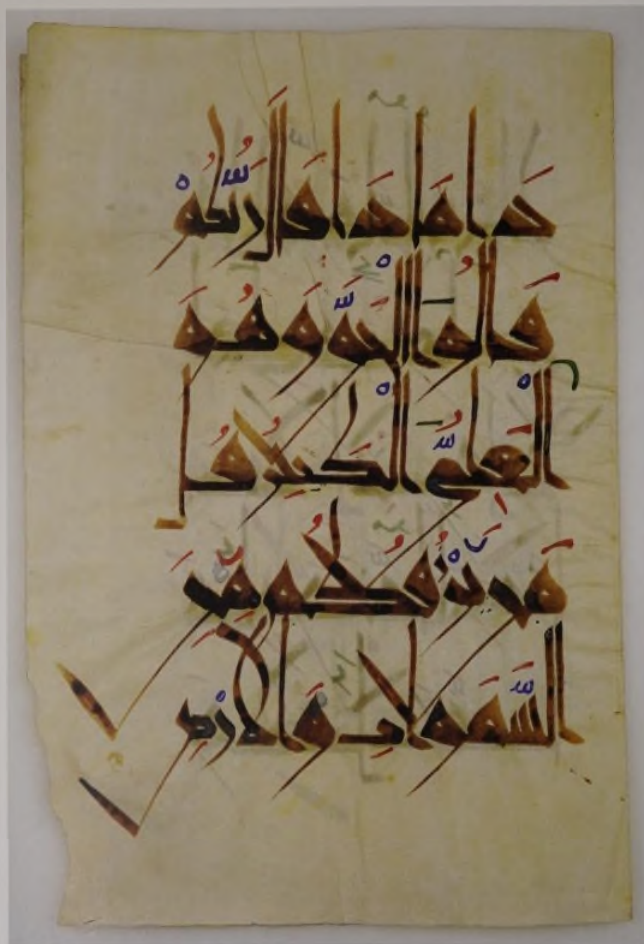 مَاذَا قَالَ رَبُّكُمْ
قَالُوا الْحَقَّ وَهُوَ
الْعَلِىُّ الْكَبِيرُ قُل
مَن يَرْزُقُكُم مِّنَ
السَّمَوَاتِ وَالْأَرْضِ